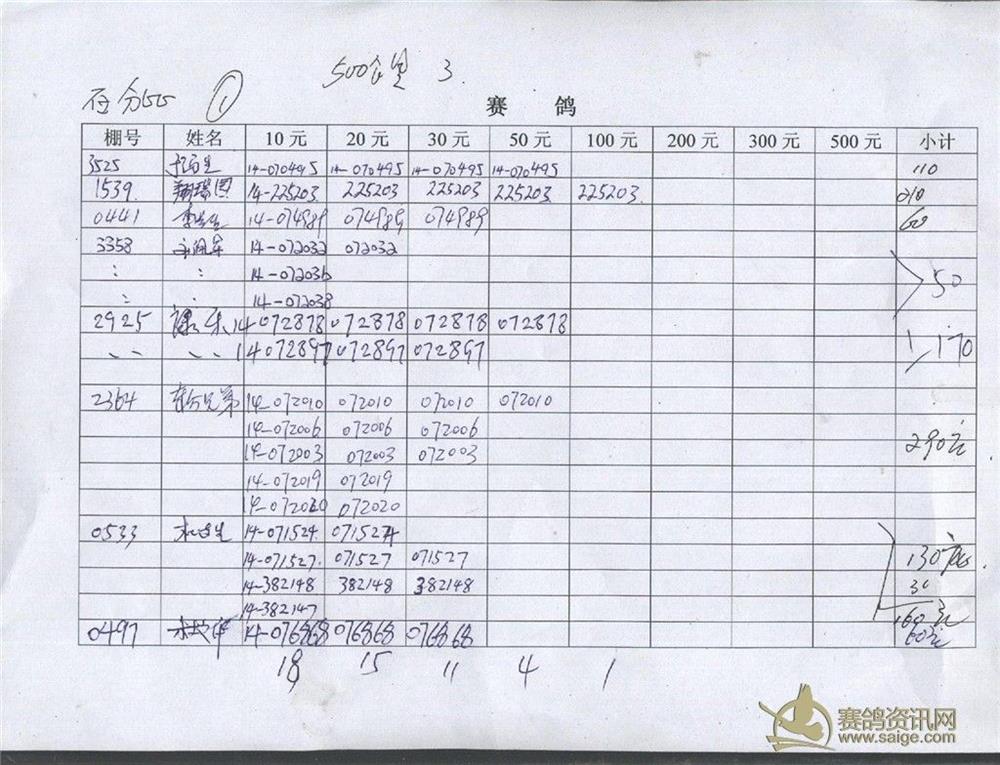 500公里 3
①
赛 鸽
棚号 姓名 10元 20元 30元 50元 100元 200元 300元 500元 小计
3525 14-070495 14-070495 14-070495 14-070495 110
1539 14-225203 225203 225203 225203 225203 210
0441 14-074989 074989 074989 60
3358 14-072032 072032
14-072036
14-072038 50
2925 14-072878 072878 072878 072878
14072897 072897 072897 170
2364 兄弟 14-072010 072010 072010 072010
14-072006 072006 072006
14-072003 072003 072003 290元
14-072019 072019
14-072020 072020
0533 14-071524 071524
14-071527 071527 071527 130
14-382148 382148 382148 30
14-382147 160元
0497 14-076868 076868 076868 60元
18 15 11 4 1
赛鸽资讯网
www.saige.com